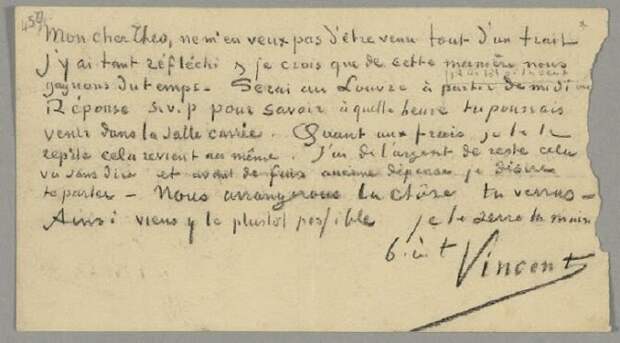 459
Mon cher Theo, ne m'en veux pas d'être venu tout d'un trait
j'y ai tant réfléchi & je crois que de cette manière nous
gagnons du temps. Serai au Louvre à partir de midi
ou plus tôt si tu veux
Réponse s.v.p pour savoir à quelle heure tu pourrais
venir dans la salle carrée. Quant aux frais je te le
repète cela revient au même. J'ai de l'argent de reste cela
va sans dire et avant de faire aucune dépense je désire
te parler – Nous arrangerons la chôse tu verras –
Ainsi viens y le plustot possible je te serre la main
b. à t
Vincent